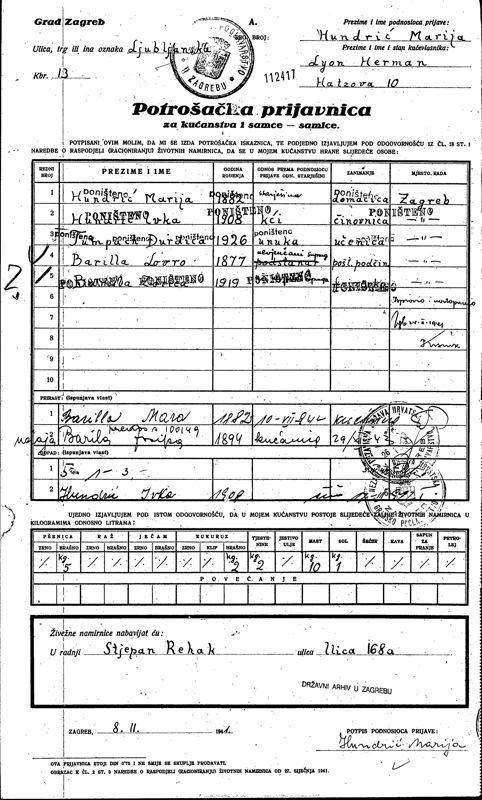 Grad Zagreb
A.
Prezime i ime podnosioca prijave:
Hundrić Marija
Ulica, trg ili ina oznaka Ljubljanska
BROJ:
Prezime i ime i stan kućevlasnika:
Lyon Herman
Kbr. 13
112417
Hatzova 10
U ZAGREBU
Potrošačka prijavnica
za kućanstva i samce — samice.
POTPISANI OVIM MOLIM, DA MI SE IZDA POTROŠAČKA ISKAZNICA, TE PODJEDNO IZJAVLJUJEM POD ODGOVORNOŠĆU IZ ČL. 18 ST. 1
NAREDBE O RASPODJELI (RACIONIRANJU) ŽIVOTNIH NAMIRNICA, DA SE U MOJEM KUĆANSTVU HRANE SLIJEDEĆE OSOBE:
REDNI BROJ PREZIME I IME GODINA ROĐENJA ODNOS PREMA PODNOSIOCU PRIJAVE ODN. STARJEŠINI ZANIMANJE MJESTO RADA
1 Hundrić Marija poništeno 1882 starješina domaćica Zagreb
2 Hundrić Ivka PONIŠTENO 1908 kći činovnica — " —
3 poništeno Đurđica 1926 unuka učenica — " —
4 Barilla Lovro 1877 podstanar pošt. podčin. — " —
5 PONIŠTENO 1919 PONIŠTENO — " —
6
7
8
9
10
PRIRAST: (Ispunjava vlast)
1 Barilla Mara 1882 10-VII-942 kućanica
2 Barila 100149 1894 kućanica
OTPAD: (Ispunjava vlast)
1
2 Hundrić Ivka 1908
UJEDNO IZJAVLJUJEM POD ISTOM ODGOVORNOŠĆU, DA U MOJEM KUĆANSTVU POSTOJE SLIJEDEĆE ZALIHE ŽIVOTNIH NAMIRNICA U
KILOGRAMIMA ODNOSNO LITRAMA:
PŠENICA RAŽ JEČAM KUKURUZ TJESTENINE JESTIVO ULJE MAST SOL ŠEĆER KAVA SAPUN ZA PRANJE PETROLEJ
ZRNO BRAŠNO ZRNO BRAŠNO ZRNO BRAŠNO ZRNO KLIP BRAŠNO
% kg. 5 % % % % % % kg. 2 kg. 2 % kg. 10 kg. 1 % % % %
POVEĆANJE
Živežne namirnice nabavljat ću:
U radnji Stjepan Rehak ulica Ilica 168a
DRŽAVNI ARHIV U ZAGREBU
ZAGREB, 8. II. 1941.
POTPIS PODNOSIOCA PRIJAVE:
Hundrić Marija
OVA PRIJAVNICA STOJI DIN 0'75 I NE SMIJE SE SKUPLJE PRODAVATI.
OBRAZAC K ČL. 2 ST. 3 NAREDBE O RASPODJELI (RACIONIRANJU) ŽIVOTNIH NAMIRNICA OD 27. SIJEČNJA 1941.